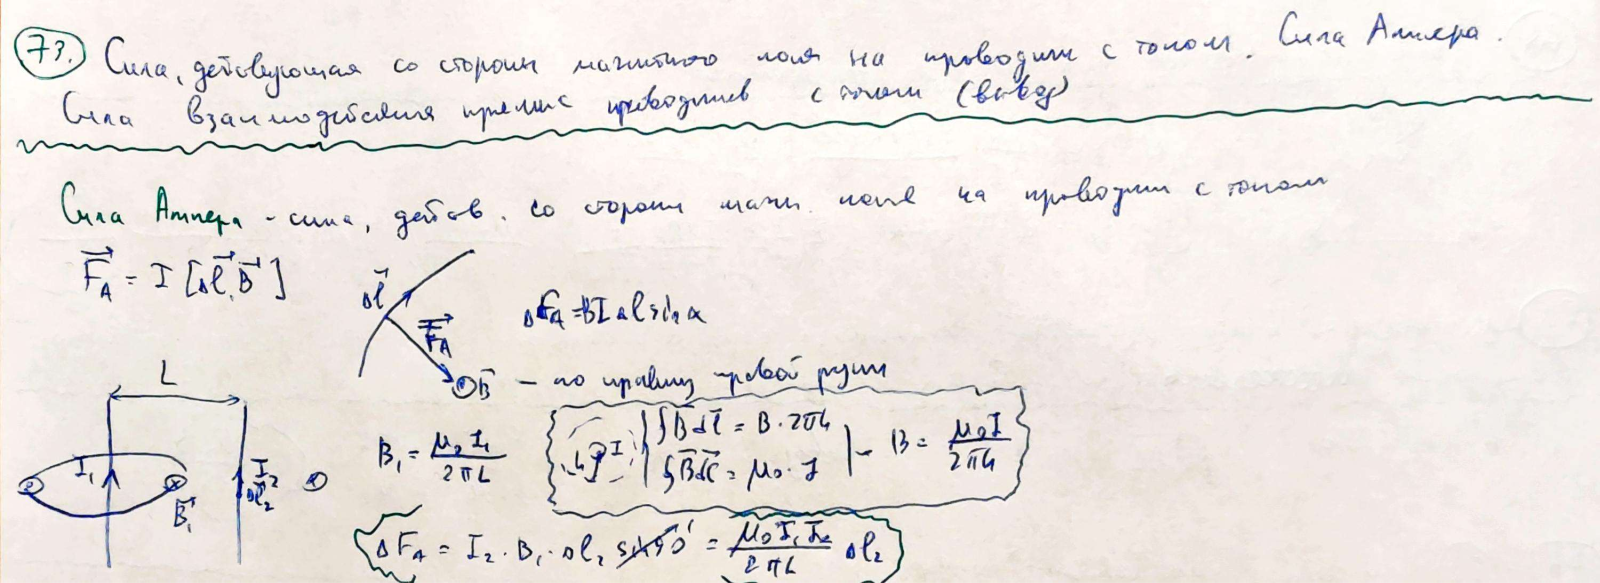 73. Сила, действующая со стороны магнитного поля на проводник с током. Сила Ампера.
Сила взаимодействия прямых проводников с током (вывод)
Сила Ампера - сила, действ. со стороны магн. поля на проводник с током
F⃗_A = I [Δl⃗, B⃗]
Δl⃗
ΔF_A = BIΔl sin α
F⃗_A
B⃗ - по правилу правой руки
L
B₁ = μ₀ I₁ / 2πL
I
∮B⃗dl⃗ = B · 2πL
∮B⃗dl⃗ = μ₀ · I
B = μ₀I / 2πL
I₁
I₂
Δl⃗₂
B⃗₁
ΔF_A = I₂ · B₁ · Δl₂ sin 90° = μ₀ I₁ I₂ / 2πL Δl₂